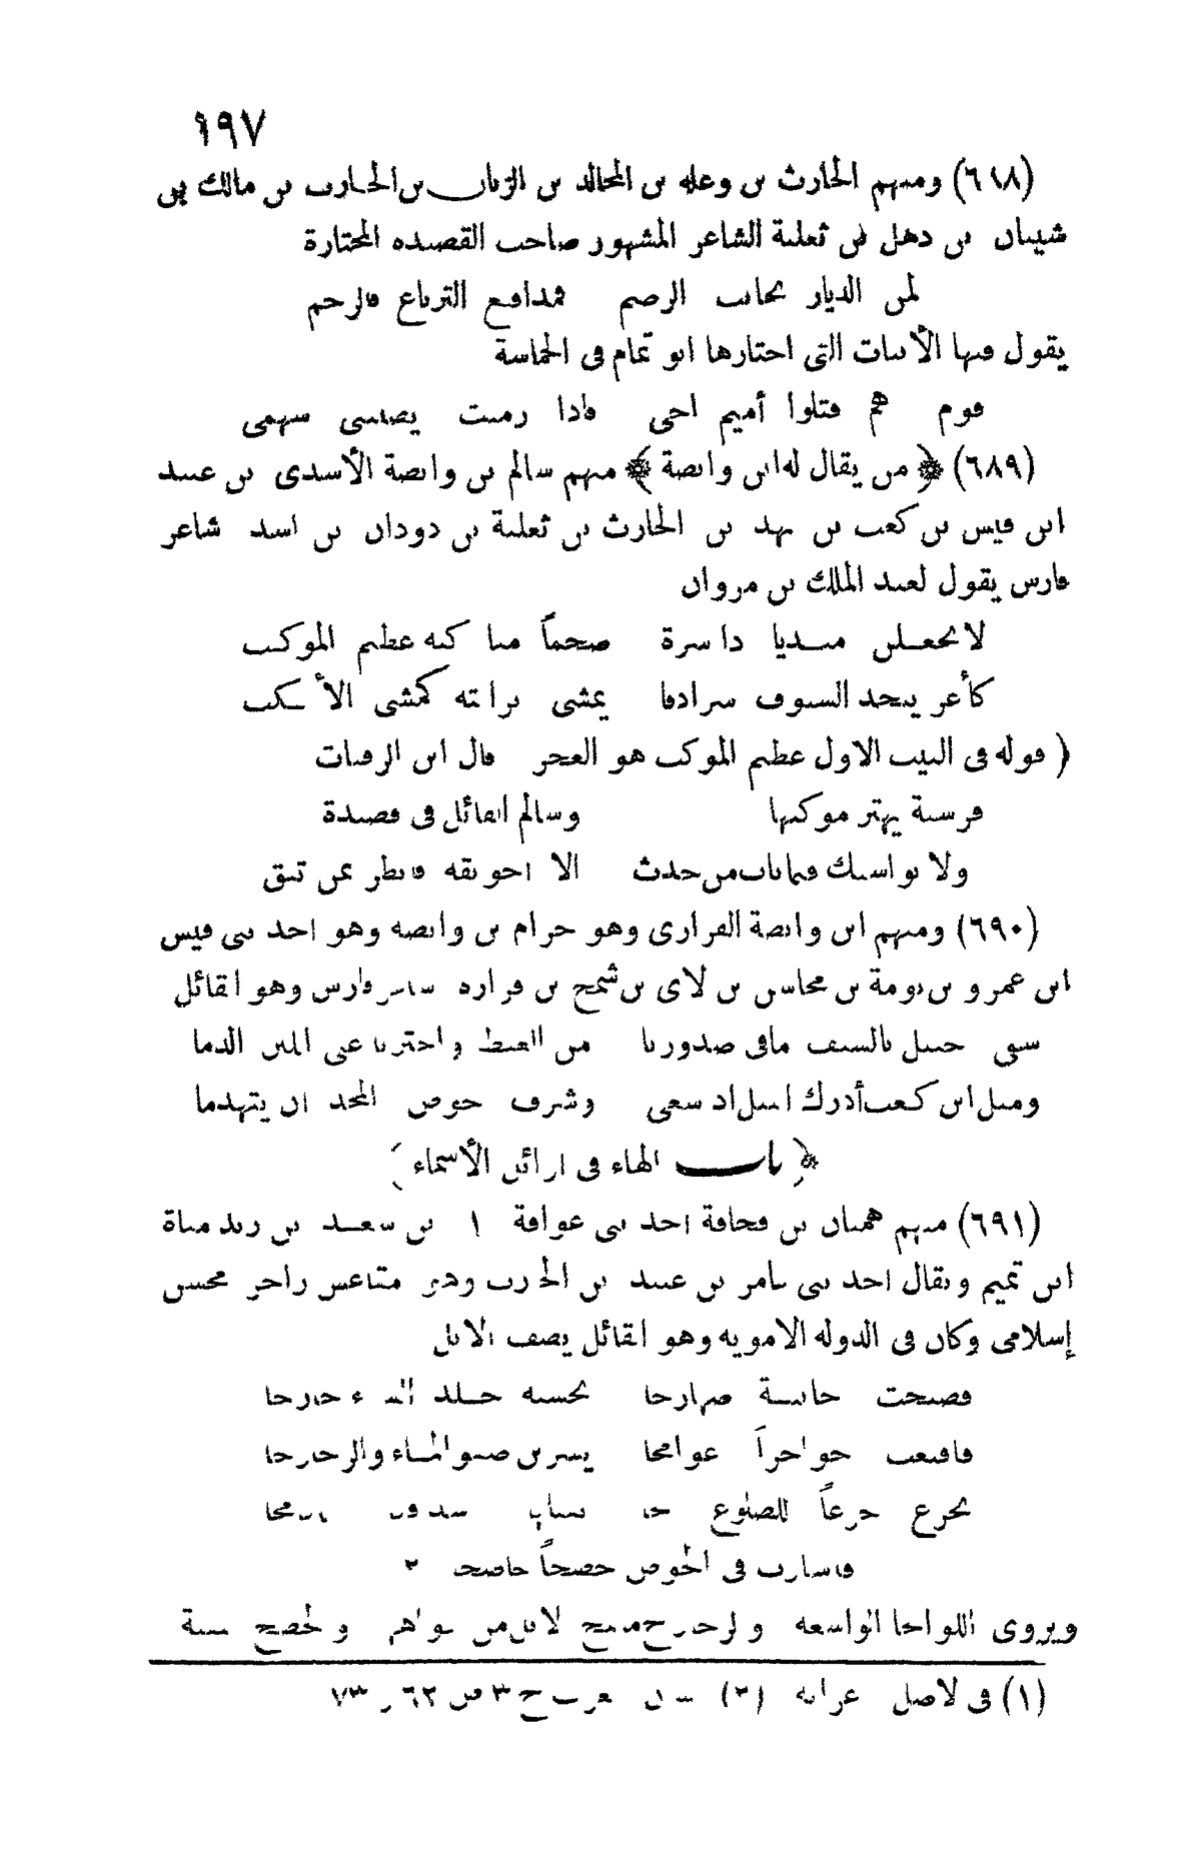 ١٩٧
(٦٨٨) ومنهم الحارث بن وعلة بن المجالد بن الزبان بن الحارث بن مالك بن
شيبان بن ذهل بن ثعلبة الشاعر المشهور صاحب القصيدة المختارة
لمن الديار بجانب الرضم فمدافع الترباع فالرجم
يقول فيها الأبيات التي اختارها ابو تمام في الحماسة
قوم هم قتلوا أميم اخي فاذا رميت يصيبني سهمي
(٦٨٩) ﴿ من يقال له ابن وابصة ﴾ منهم سالم بن وابصة الأسدي بن عبيد
ابن قيس بن كعب بن نهد بن الحارث بن ثعلبة بن دودان بن اسد شاعر
فارس يقول لعبد الملك بن مروان
لا تجعلن مبديا ذا سرة ضخماً مناكبه عظيم الموكب
كأغر يتخذ السيوف سرادقا يمشي برايته كمشي الأنكب
( قوله في البيت الاول عظيم الموكب هو العجز قال ابن الرقيات
قرشية يهتز موكبها وسالم القائل في قصيدة
ولا يواسيك فيما ناب من حدث الا اخو ثقة فانظر بمن تثق
(٦٩٠) ومنهم ابن وابصة الفزاري وهو حرام بن وابصة وهو احد بني قيس
ابن عمرو بن ثومة بن مخاشن بن لأي بن شمخ بن فزارة شاعر فارس وهو القائل
سيفي حسيل بالسيف ما في صدورنا من الغيظ واخترنا على اللبن الدما
ومثل ابن كعب أدرك اذ سعى وشرف حوض المجد ان يتهدما
﴿ باب الهاء في اوائل الأسماء ﴾
(٦٩١) منهم هميان بن قحافة احد بني عوافة ١ بن سعد بن زيد مناة
ابن تميم ويقال احد بني عامر بن عبيد بن الحارث وهو مقاعس راجز محسن
إسلامي وكان في الدولة الاموية وهو القائل يصف الابل
فصبحت جابية صهارجا تحسبه جلد السماء خارجا
يجرع جرعاً للضلوع
فاسأرت في الحوض حضجاً حاضجا ٢
ويروى اللواحا الواسعة
(١) في الاصل عرابة (٢) لسان العرب ج ٣ ص ٦٢ ، ٧٣